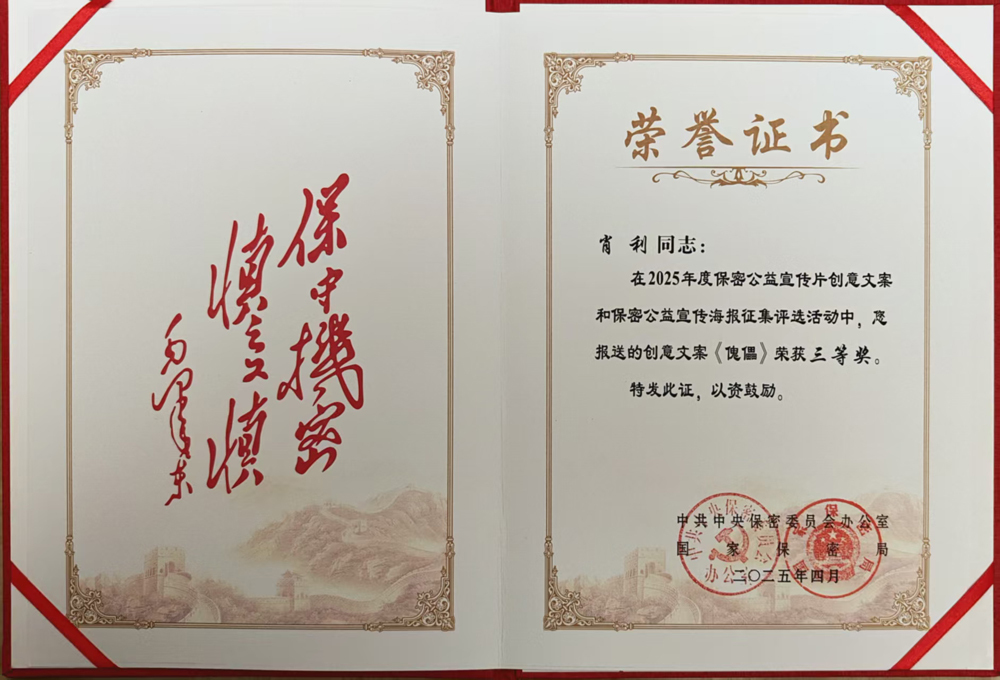 保守機密
慎之又慎
毛澤东
荣誉证书
肖利同志：
在2025年度保密公益宣传片创意文案
和保密公益宣传海报征集评选活动中，您
报送的创意文案《傀儡》荣获三等奖。
特发此证，以资鼓励。
中共中央保密委员会办公室
国家保密局
二〇二五年四月